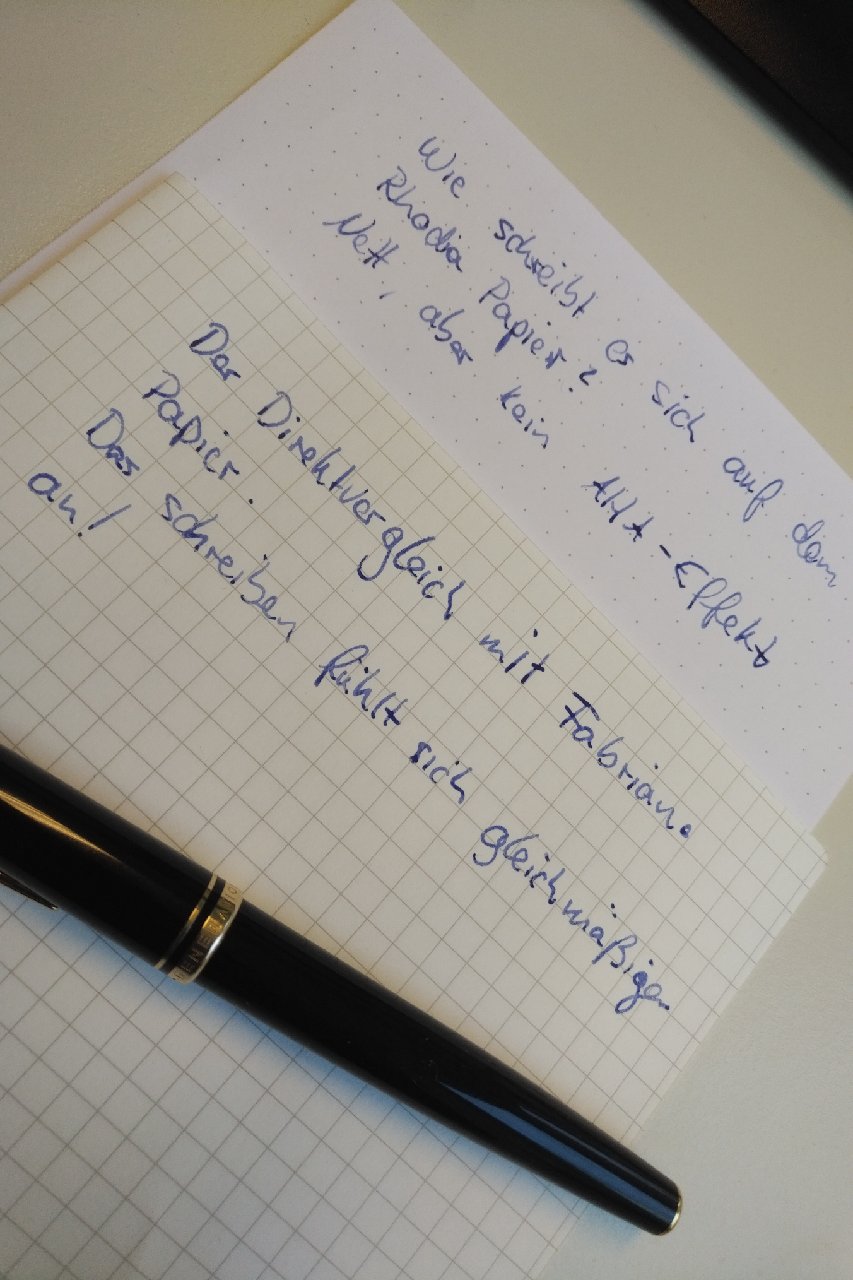 Wie schreibt es sich auf dem
Rhodia Papier?
Nett, aber kein AHA-Effekt
Der Direktvergleich mit Fabriano
Papier.
Das schreiben fühlt sich gleichmäßiger
an!